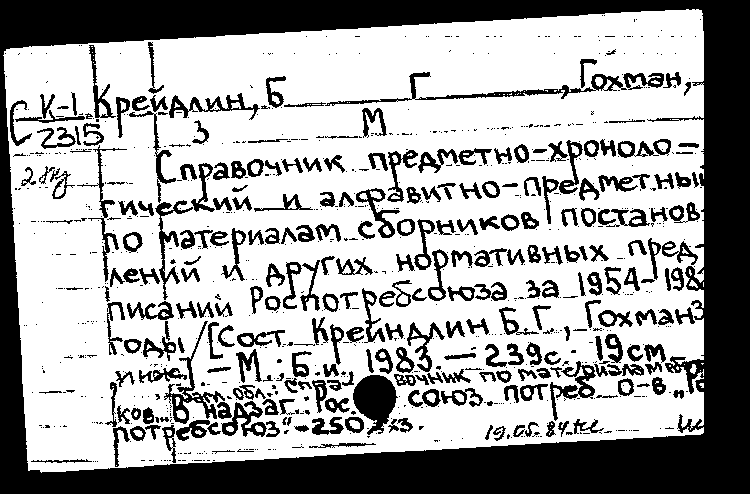 К-1 Крейдлин, Б Г , Гохман,
2315 З М
2 экз Справочник предметно-хроноло-
гический и алфавитно-предметный
по материалам сборников постанов-
лений и других нормативных пред-
писаний Роспотребсоюза за 1954-1982
годы / [Сост. Крейндлин Б.Г., Гохман З
, инж.]. - М.: Б.и., 1983. - 239с.; 19см.
Загл. обл.: Справочник по материалам
ков... В надзаг.: Рос. союз. потреб. о-в „Ро
потребсоюз". - 250 экз.
19.05.84